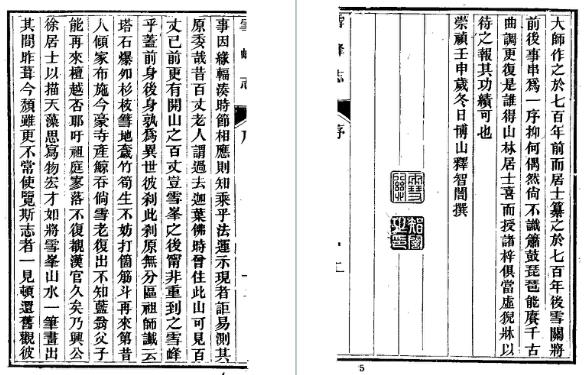 大師作之於七百年前而居士纂之於七百年後雪關將
前後事串爲一序抑何偶然倘不識簫鼓琵琶能賡千古
曲調更復是誰得山林居士喜而授諸梓俱當虛猊牀以
待之報其功績可也
崇禎壬申歲冬日博山釋智誾撰
雪峰志
序
5
雪峰志
序
事因緣輻湊時節相應則知乘乎法運示現者詎易測其
原委哉昔百丈老人謂過去迦葉佛時曾住此山可見百
丈已前更有開山之百丈豈雪峯之後甯非重到之雪峰
乎蓋前身後身孰爲異世彼剎此剎原無分區祖師讖云
塔石爆如杉枝雪地竹筍生不妨打箇筋斗再來第昔
人傾家布施今豪寺產鯨吞倘雪老復出不知藍翁父子
能再來檀越否耶吁祖庭寥落不復覩漢官久矣乃興公
徐居士以描天藻思寫物宏才如將雪峯山水一筆畫出
其間昨葺今頹雖更不常使覽斯志者一見頓還舊觀彼